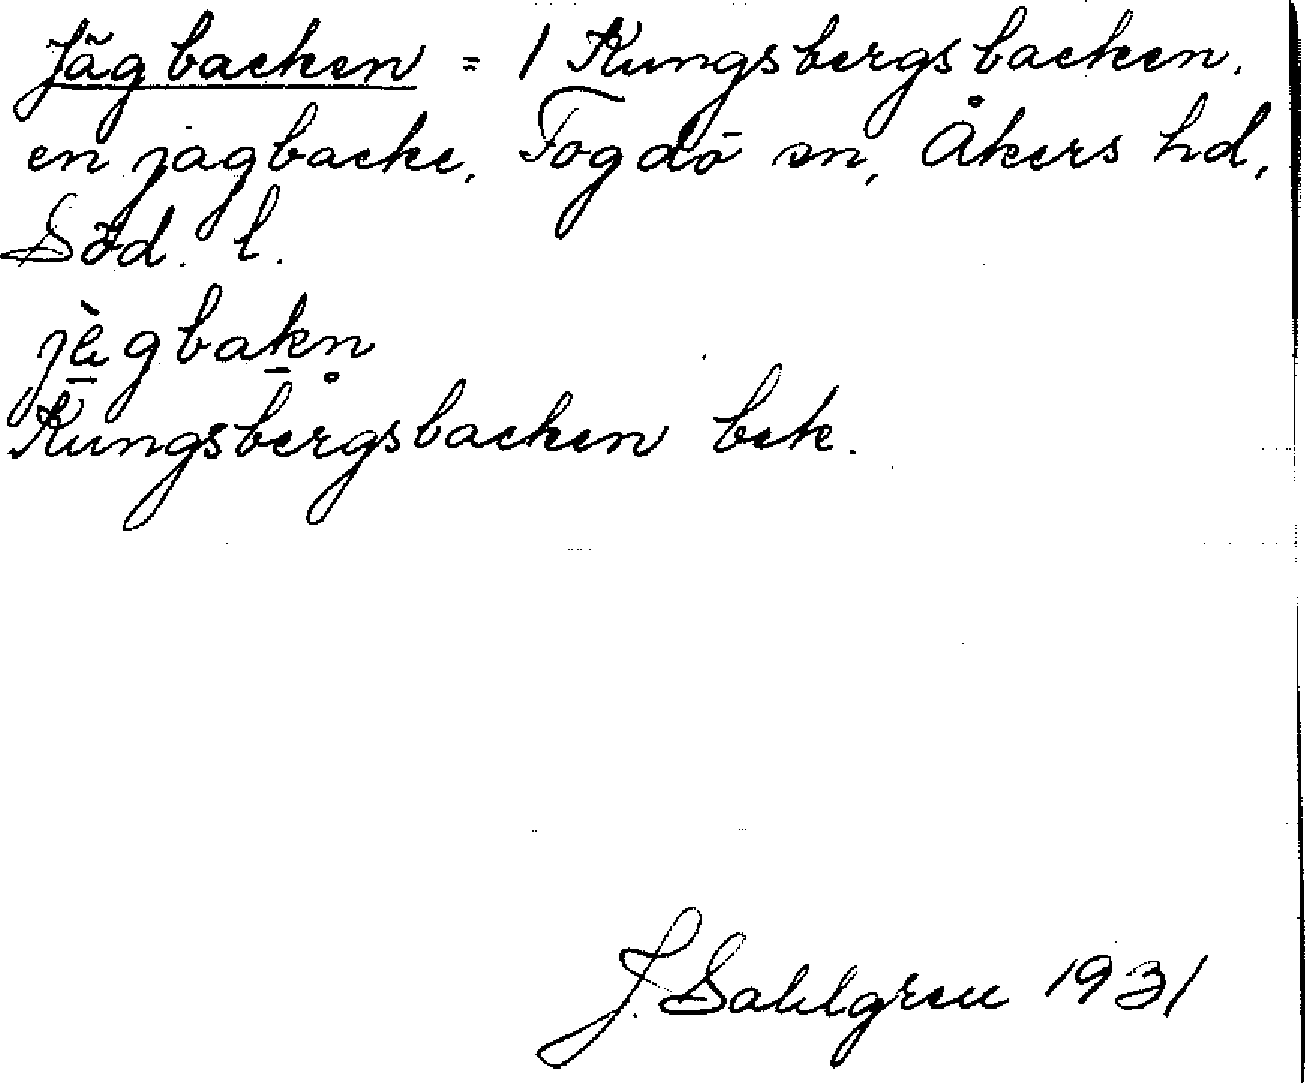 Jägbacken = 1 Kungsbergsbacken.
en jagbacke, Fogdö sn, Åkers hd,
Söd. l.
jè̱gbaḵn̥
Kungsbergsbacken bek.
J. Sahlgren 1931